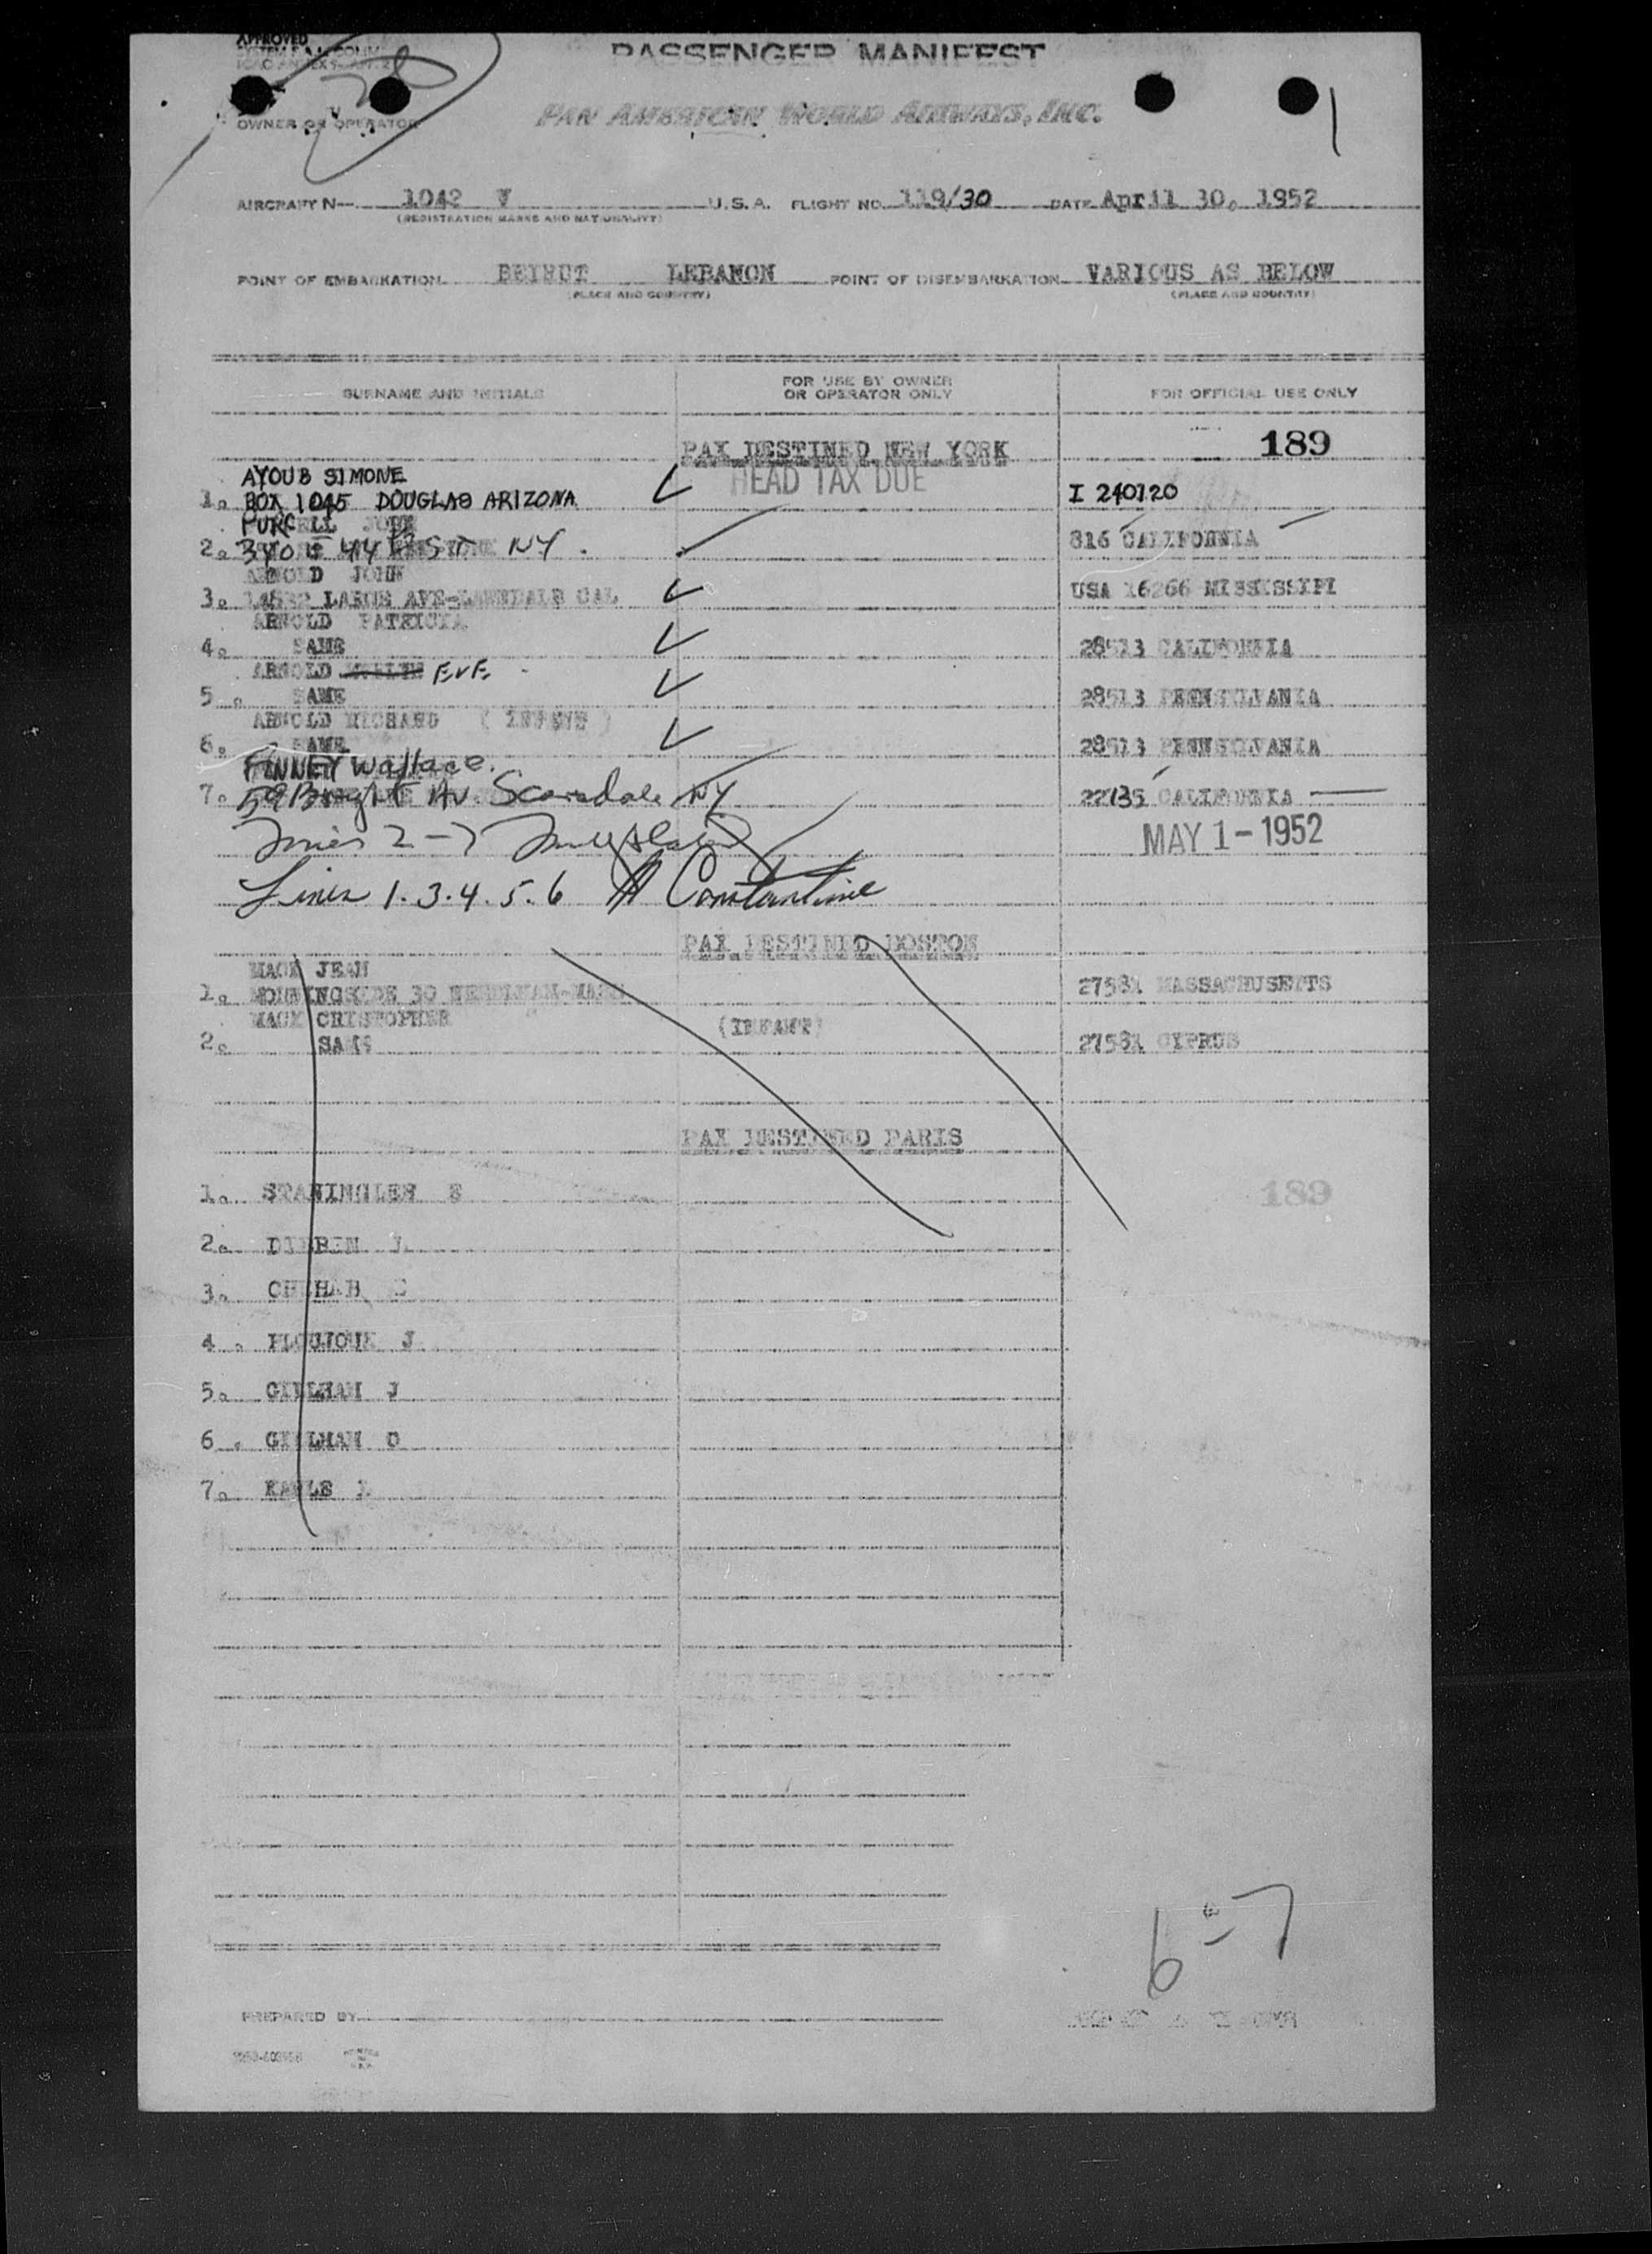 APPROVED
PASSENGER MANIFEST
OWNER OR OPERATOR PAN AMERICAN WORLD AIRWAYS, INC.
AIRCRAFT N— 1042 V U.S.A. FLIGHT NO. 119/30 DATE April 30, 1952
(REGISTRATION MARKS AND NATIONALITY)
POINT OF EMBARKATION BEIRUT LEBANON POINT OF DISEMBARKATION VARIOUS AS BELOW
(PLACE AND COUNTRY) (PLACE AND COUNTRY)
SURNAME AND INITIALS FOR USE BY OWNER OR OPERATOR ONLY FOR OFFICIAL USE ONLY
PAX DESTINED NEW YORK 189
AYOUB SIMONE HEAD TAX DUE
1. BOX 1045 DOUGLAS ARIZONA I 240720
PURCELL JOHN
2. 340 E 44 ST NY. 816 CALIFORNIA
ARNOLD JOHN
3. LARCH AVE-LAWNDALE CAL USA 16266 MISSISSIPI
ARNOLD PATRICIA
4. SAME 28513 CALIFORNIA
ARNOLD EVE
5. SAME 28513 PENNSYLVANIA
ARNOLD RICHARD (INFANT)
6. SAME 28513 PENNSYLVANIA
FINNEY Wallace.
7. 59 Av. Scarsdale NY 22735 CALIFORNIA
2-7 MAY 1-1952
Lines 1.3.4.5.6 Constantine
PAX DESTINED BOSTON
MACK JEAN
1. MORNINGSIDE 30 NEEDHAM-MASS 27581 MASSACHUSETTS
MACK CRISTOPHER (INFANT)
2. SAME 27581 CYPRUS
PAX DESTINED PARIS
1. 189
2.
3. CHEHAB
4. J
5. GILLHAM J
6. GILLHAM O
7.
6-7
PREPARED BY